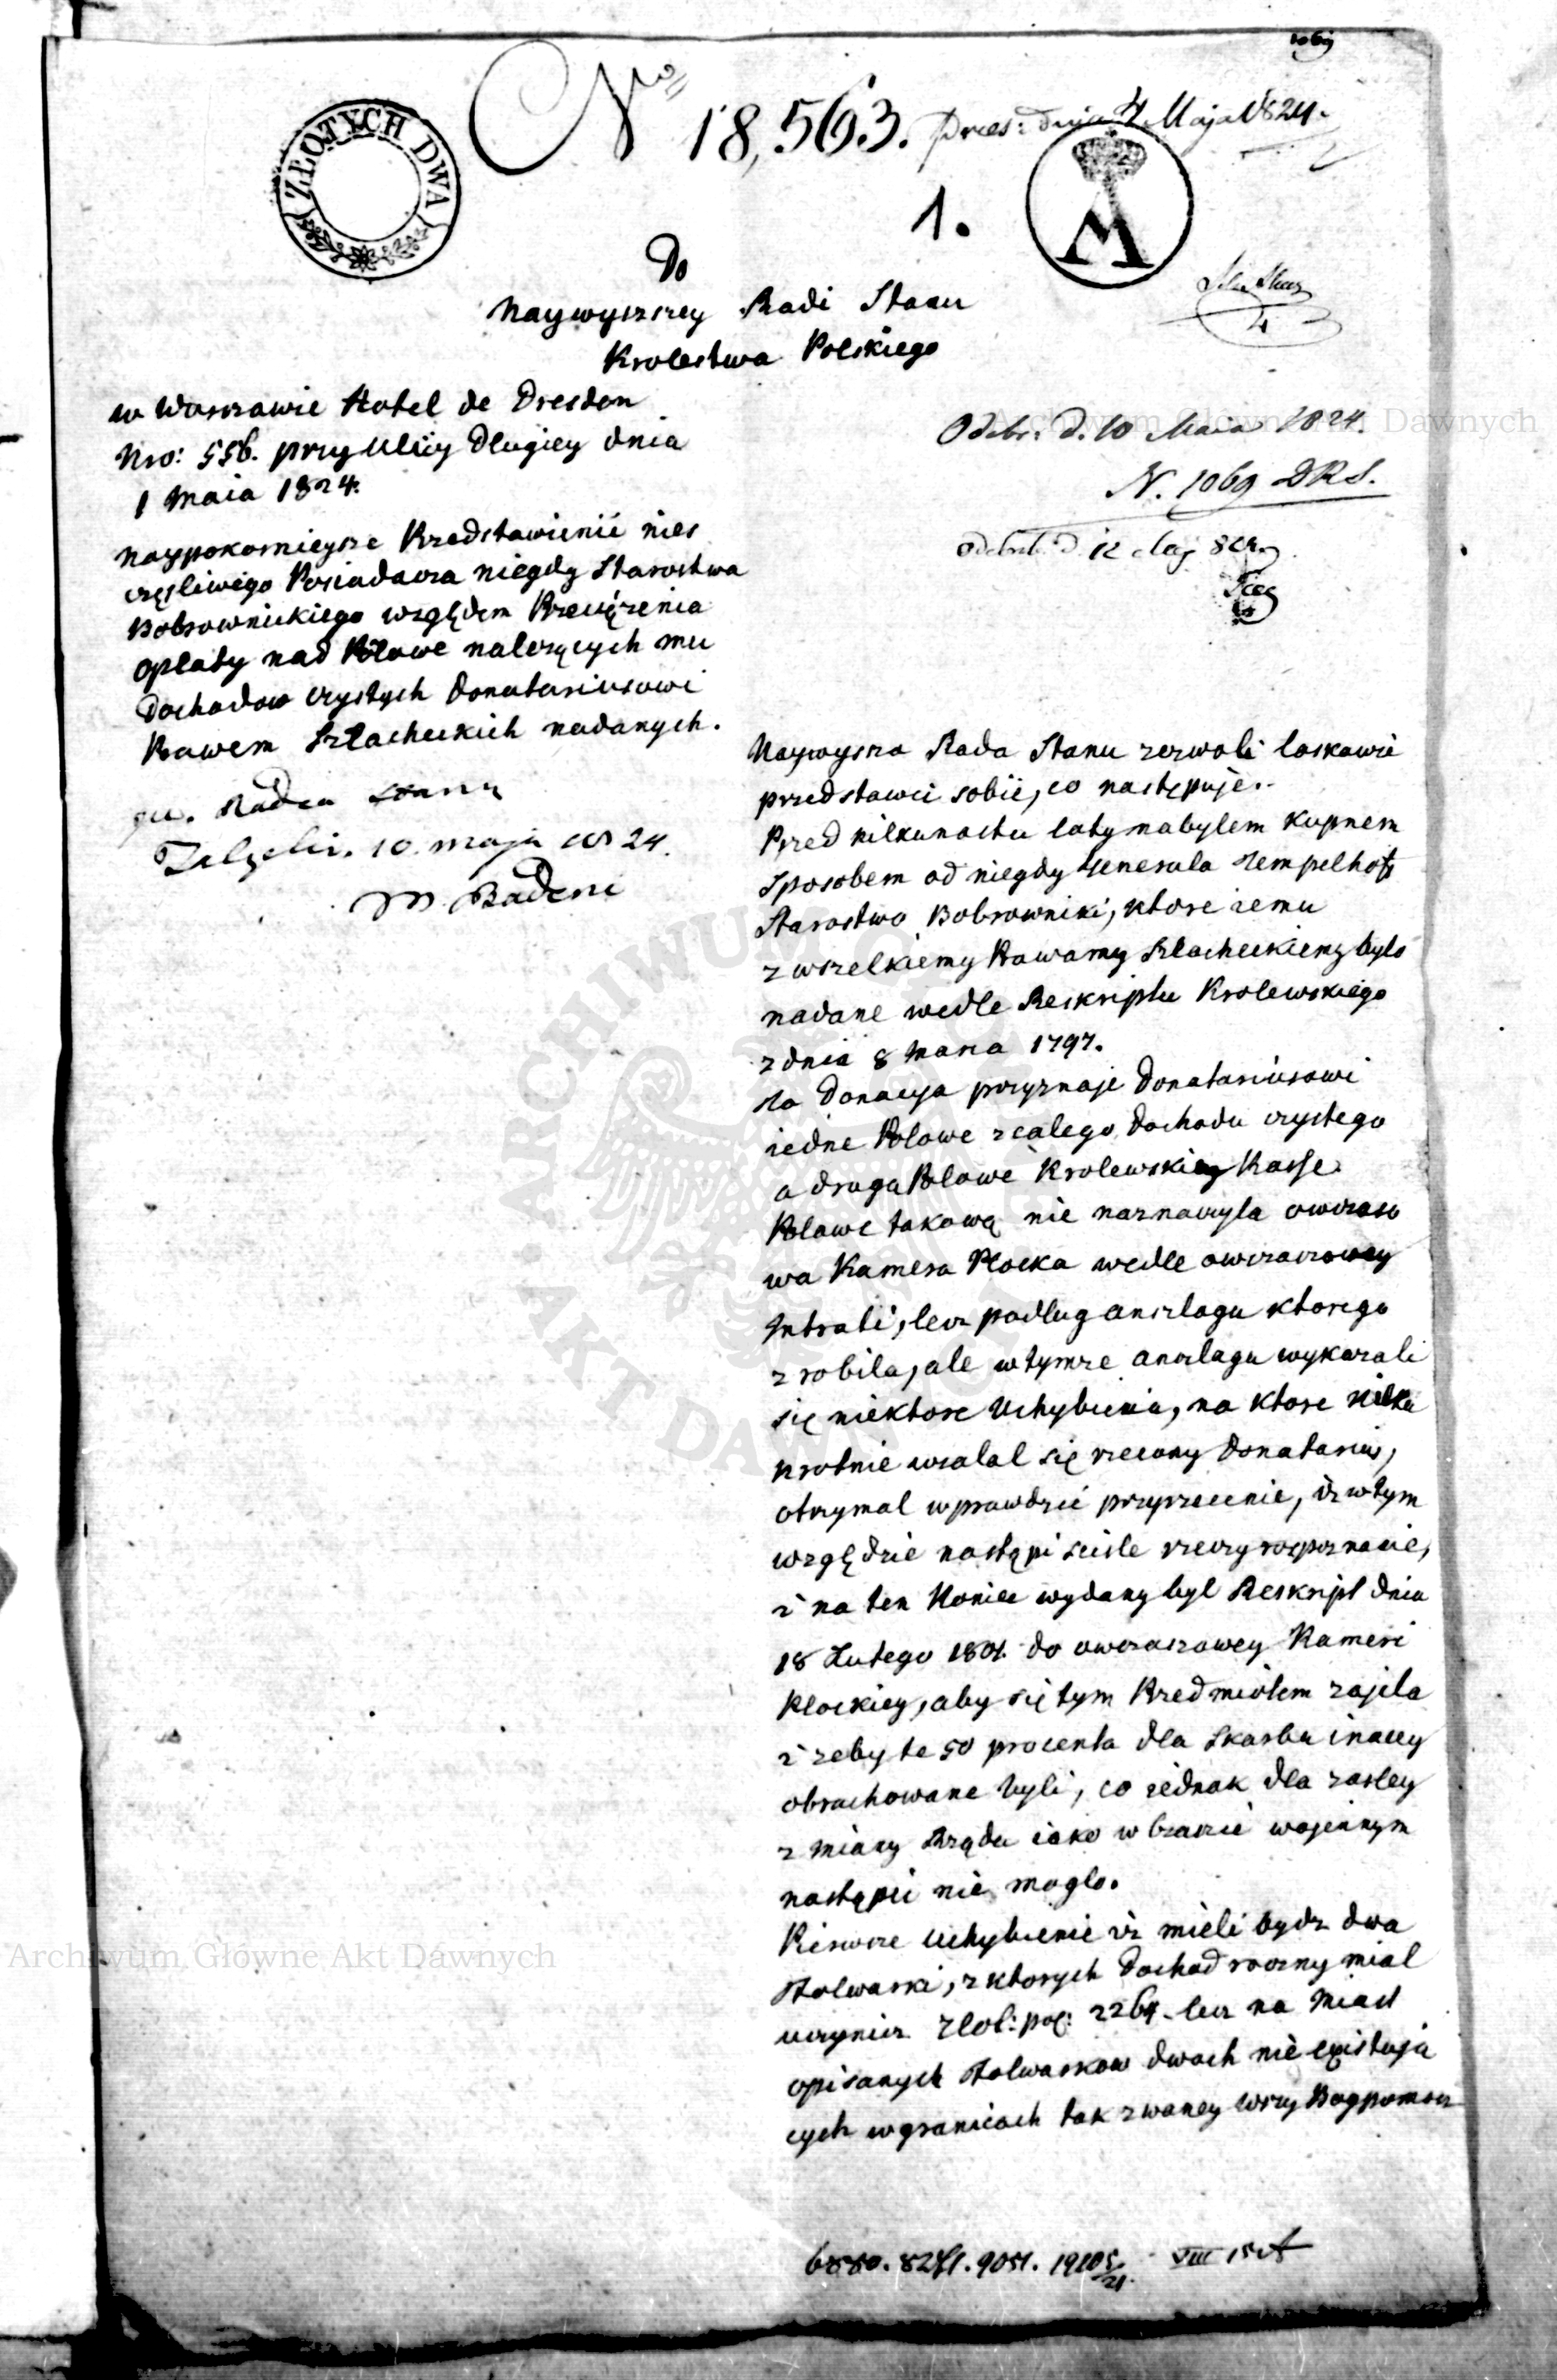 1069
No 18,563. Pres: dnia 4 Maja 1824.
ZŁOTYCH DWA
1.
M
Do
Naywyszszey Radi Stanu
Krolestwa Polskiego
w Warszawie Hotel de Dresden
Nro: 556. przy Ulicy Długiey dnia
1 Maia 1824.
Odebr. d. 10 Maia 1824.
N. 1069 DRS.
Odebrał d. 12 Maj 824.
Naypokornieysze Przedstawienie nies
częsliwego Posiadacza niegdy Starostwa
Bobrownickiego względem Przeciężenia
opłaty nad Połowe należących mu
Dochodow czystych Donatariusowi
Prawem Szlacheckich nadanych.
Radca Stanu
10. maja 1824.
M. Badeni
Naywysza Rada Stanu zezwoli laskawie
przedstawci sobie, co następuje.
Przed kilkunastu laty nabylem kupnem
Sposobem od niegdy Generala Tempelhof
Starostwo Bobrowniki, ktore iemu
z wszelkiemy Prawamy Szlacheckiemy bylo
nadane wedle Reskriptu Krolewskiego
z dnia 8 Marca 1797.
Ta Donacya przyznaje Donatariusowi
iedne Polowe z calego Dochodu czystego
a druga Polowe Krolewskiey Kasse.
Polowe takową nie naznaczyla owczaso
wa Kamera Plocka wedle owczasowey
Intrati, lecz podlug anszlagu ktorego
zrobila, ale w tymze anszlagu wykazali
się niektore Uchybienia, na ktore kilka
krotnie uzalal się rzeczony Donatarius,
otrzymal wprawdzie przyrzecenie, iż w tym
względzie nastąpi scisle rzeczy rospoznanie,
i na ten Koniec wydany byl Reskript dnia
18 Lutego 1801. do owczasowey Kameri
Plockiey, aby się tym Przedmiotem zajela
i zeby te 50 procenta dla Skarbu inaczey
obrachowane byli, co iednak dla zaszley
zmiany Rządu iako w czasie wojennym
nastąpic nie moglo.
Pierwsze Uchybienie iż mieli bydz dwa
Folwarki, z ktorych Dochod roczny mial
uczynic Zlot: pol: 2264. lecz na Miast
opisanych Folwarkow dwoch nie existują
cych w granicach tak zwaney wszy Bogpomoz
6880. 8251. 9051. 19105/21. VIII 15
Archiwum Główne Akt Dawnych
Archiwum Główne Akt Dawnych
ARCHIWUM GŁÓWNE AKT DAWNYCH